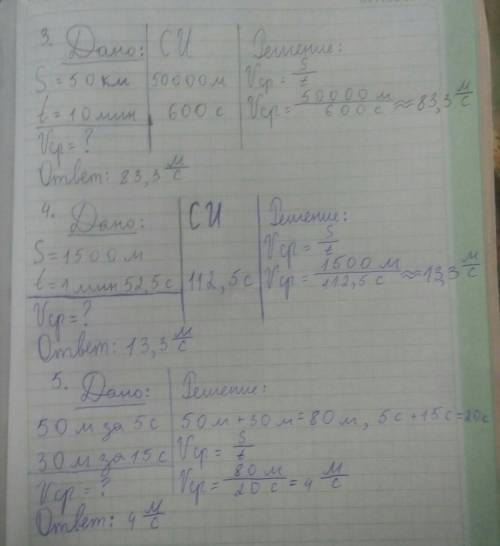 3. Дано: СИ Решение:
S = 50 км 50000 м Vср = S/t
t = 10 мин 600 с Vср = 50000 м / 600 с ≈ 83,3 м/с
Vср = ?
Ответ: 83,3 м/с
4. Дано: СИ Решение:
S = 1500 м Vср = S/t
t = 1 мин 52,5 с 112,5 с Vср = 1500 м / 112,5 с ≈ 13,3 м/с
Vср = ?
Ответ: 13,3 м/с
5. Дано: Решение:
50 м за 5 с 50 м + 30 м = 80 м, 5 с + 15 с = 20 с
30 м за 15 с Vср = S/t
Vср = ? Vср = 80 м / 20 с = 4 м/с
Ответ: 4 м/с